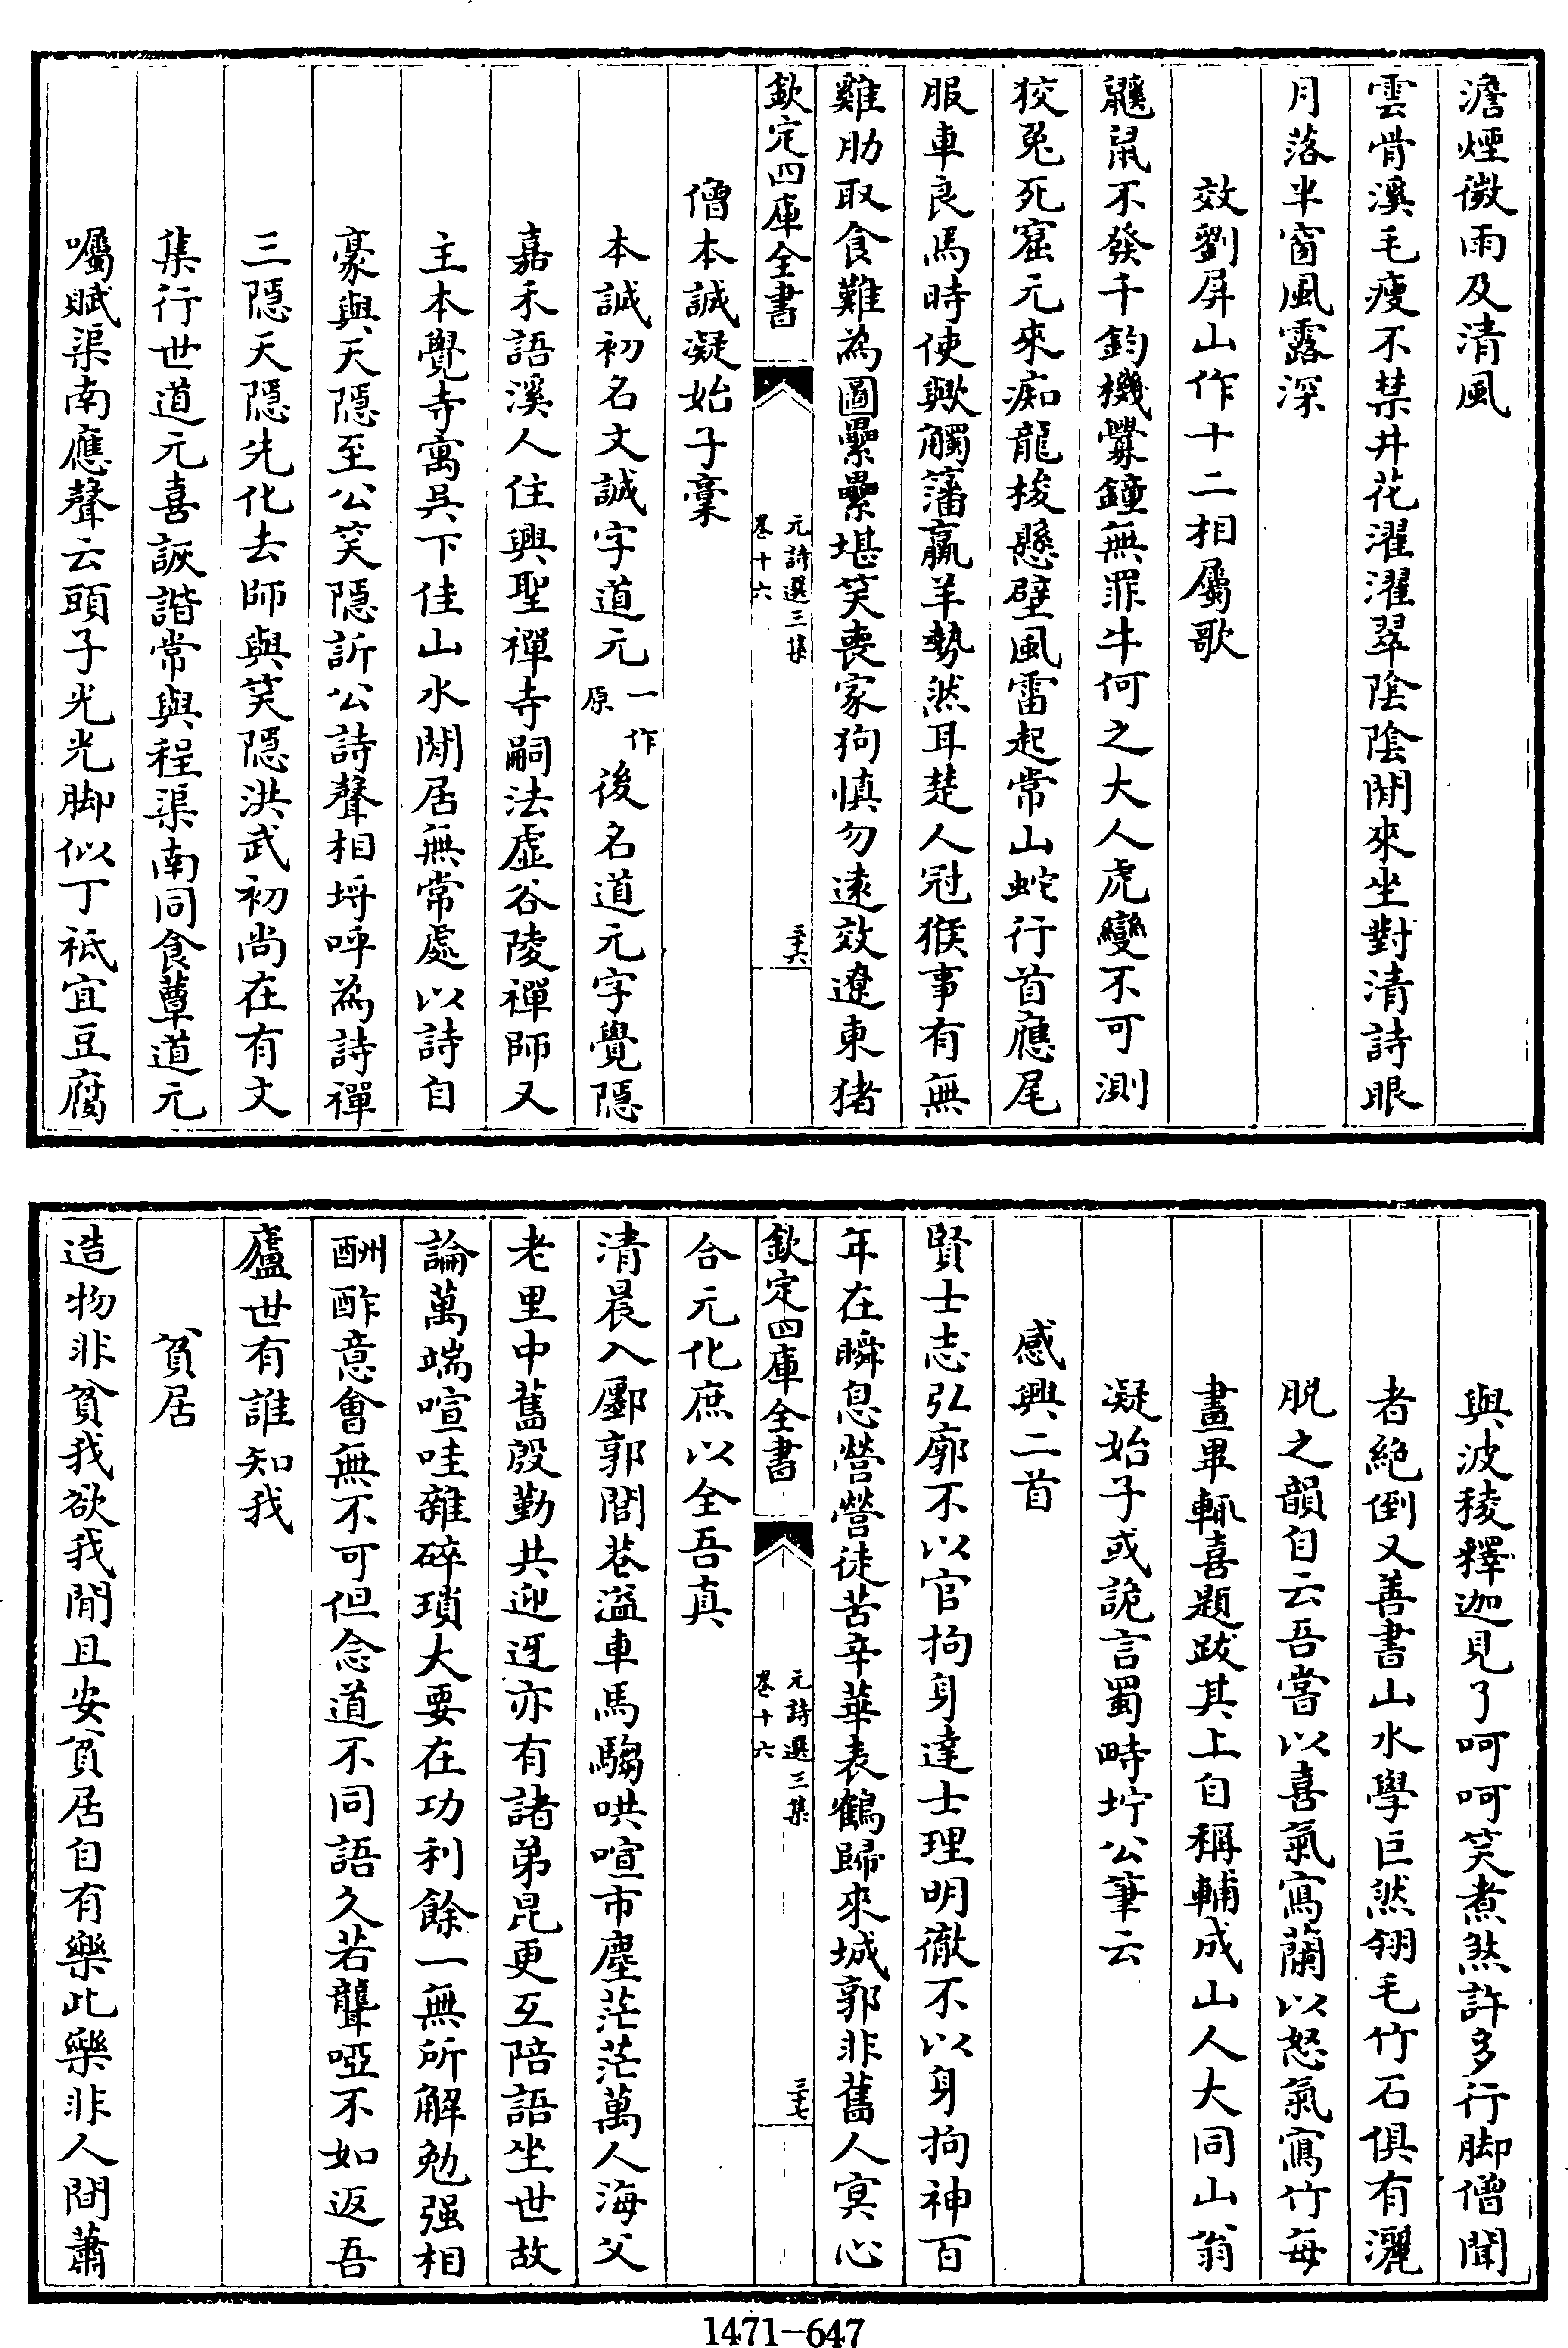 澹煙微雨及清風
雲骨溪毛瘦不禁井花濯濯翠陰陰閒來坐對清詩眼
月落半窗風露深
效劉屏山作十二相屬歌
鼷鼠不發千鈞機釁鐘無罪牛何之大人虎變不可測
狡兎死窟元來痴龍梭懸壁風雷起常山蛇行首應尾
服車良馬時使歟觸藩羸羊勢然耳楚人冠猴事有無
雞肋取食難為圖纍纍堪笑喪家狗慎勿遠效遼東猪
欽定四庫全書
元詩選三集
卷十六
三十六
僧本誠凝始子稾
本誠初名文誠字道元一作原後名道元字覺隱
嘉禾語溪人住興聖禪寺嗣法虛谷陵禪師又
主本覺寺寓吳下佳山水閒居無常處以詩自
豪與天隱至公笑隱訢公詩聲相埒呼為詩禪
三隱天隱先化去師與笑隱洪武初尚在有文
集行世道元喜詼諧常與程渠南同食蕈道元
囑賦渠南應聲云頭子光光脚似丁祗宜豆腐
與波稜釋迦見了呵呵笑煮煞許多行脚僧聞
者絶倒又善書山水學巨然翎毛竹石俱有灑
脱之韻自云吾嘗以喜氣寫蘭以怒氣寫竹每
畫畢輒喜題跋其上自稱輔成山人大同山翁
凝始子或詭言蜀時坾公筆云
感興二首
賢士志弘廓不以官拘身達士理明徹不以身拘神百
年在瞬息營營徒苦辛華表鶴歸來城郭非舊人冥心
欽定四庫全書
元詩選三集
卷十六
三十七
合元化庶以全吾真
清晨入鄽郭閭巷溢車馬騶哄喧市塵茫茫萬人海父
老里中舊殷勤共迎迓亦有諸弟昆更互陪語坐世故
論萬端喧哇雜碎瑣大要在功利餘一無所解勉强相
酬酢意會無不可但念道不同語久若聾啞不如返吾
廬世有誰知我
貧居
造物非貧我欲我閒且安貧居自有樂此樂非人間蕭
1471-647